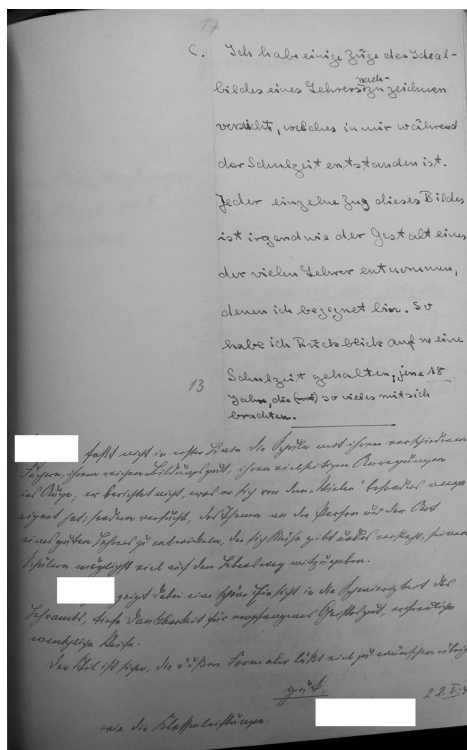 17
C. Ich habe einige Züge des Ideal-
bildes eines Lehrers nach-
zuzeichnen
versucht, welches in mir während
der Schulzeit entstanden ist.
Jeder einzelne Zug dieses Bildes
ist irgendwie der Gestalt eines
der vielen Lehrer entnommen,
denen ich begegnet bin. So
habe ich Rückblick auf meine
13 Schulzeit gehalten, jene 18
Jahre, die so vieles mit sich
brachten.
faßt nicht in erster Linie die Schule mit ihren verschiedenen
Fächern, ihrem reichen Bildungsgut, ihren vielseitigen Anregungen
ins Auge, er berichtet nicht, was er sich von dem "Vielen" besonders ange-
eignet hat; sondern versucht, das Thema an der Person und der Art
eines guten Lehrers zu entwickeln, der sich Mühe gibt und es versteht, seinen
Schülern möglichst viel auf den Lebensweg mitzugeben.
zeigt dabei eine schöne Einsicht in die Schwierigkeit des
Lehramts, tiefe Dankbarkeit für empfangenes Geistesgut, erfreuliche
menschliche Reife.
Der Stil ist sicher, die äußere Form aber läßt viel zu wünschen übrig.
gut,
22. V.
wie die Klassenleistungen.